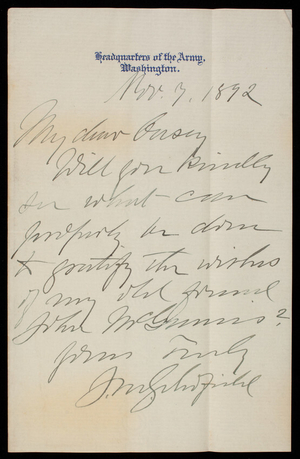 Headquarters of the Army,
Washington.
Nov. 7, 1892
My dear Casey
Will you kindly
see what can
properly be done
to gratify the wishes
of my old friend
John McGinnis?
Yours truly
J.M. Schofield